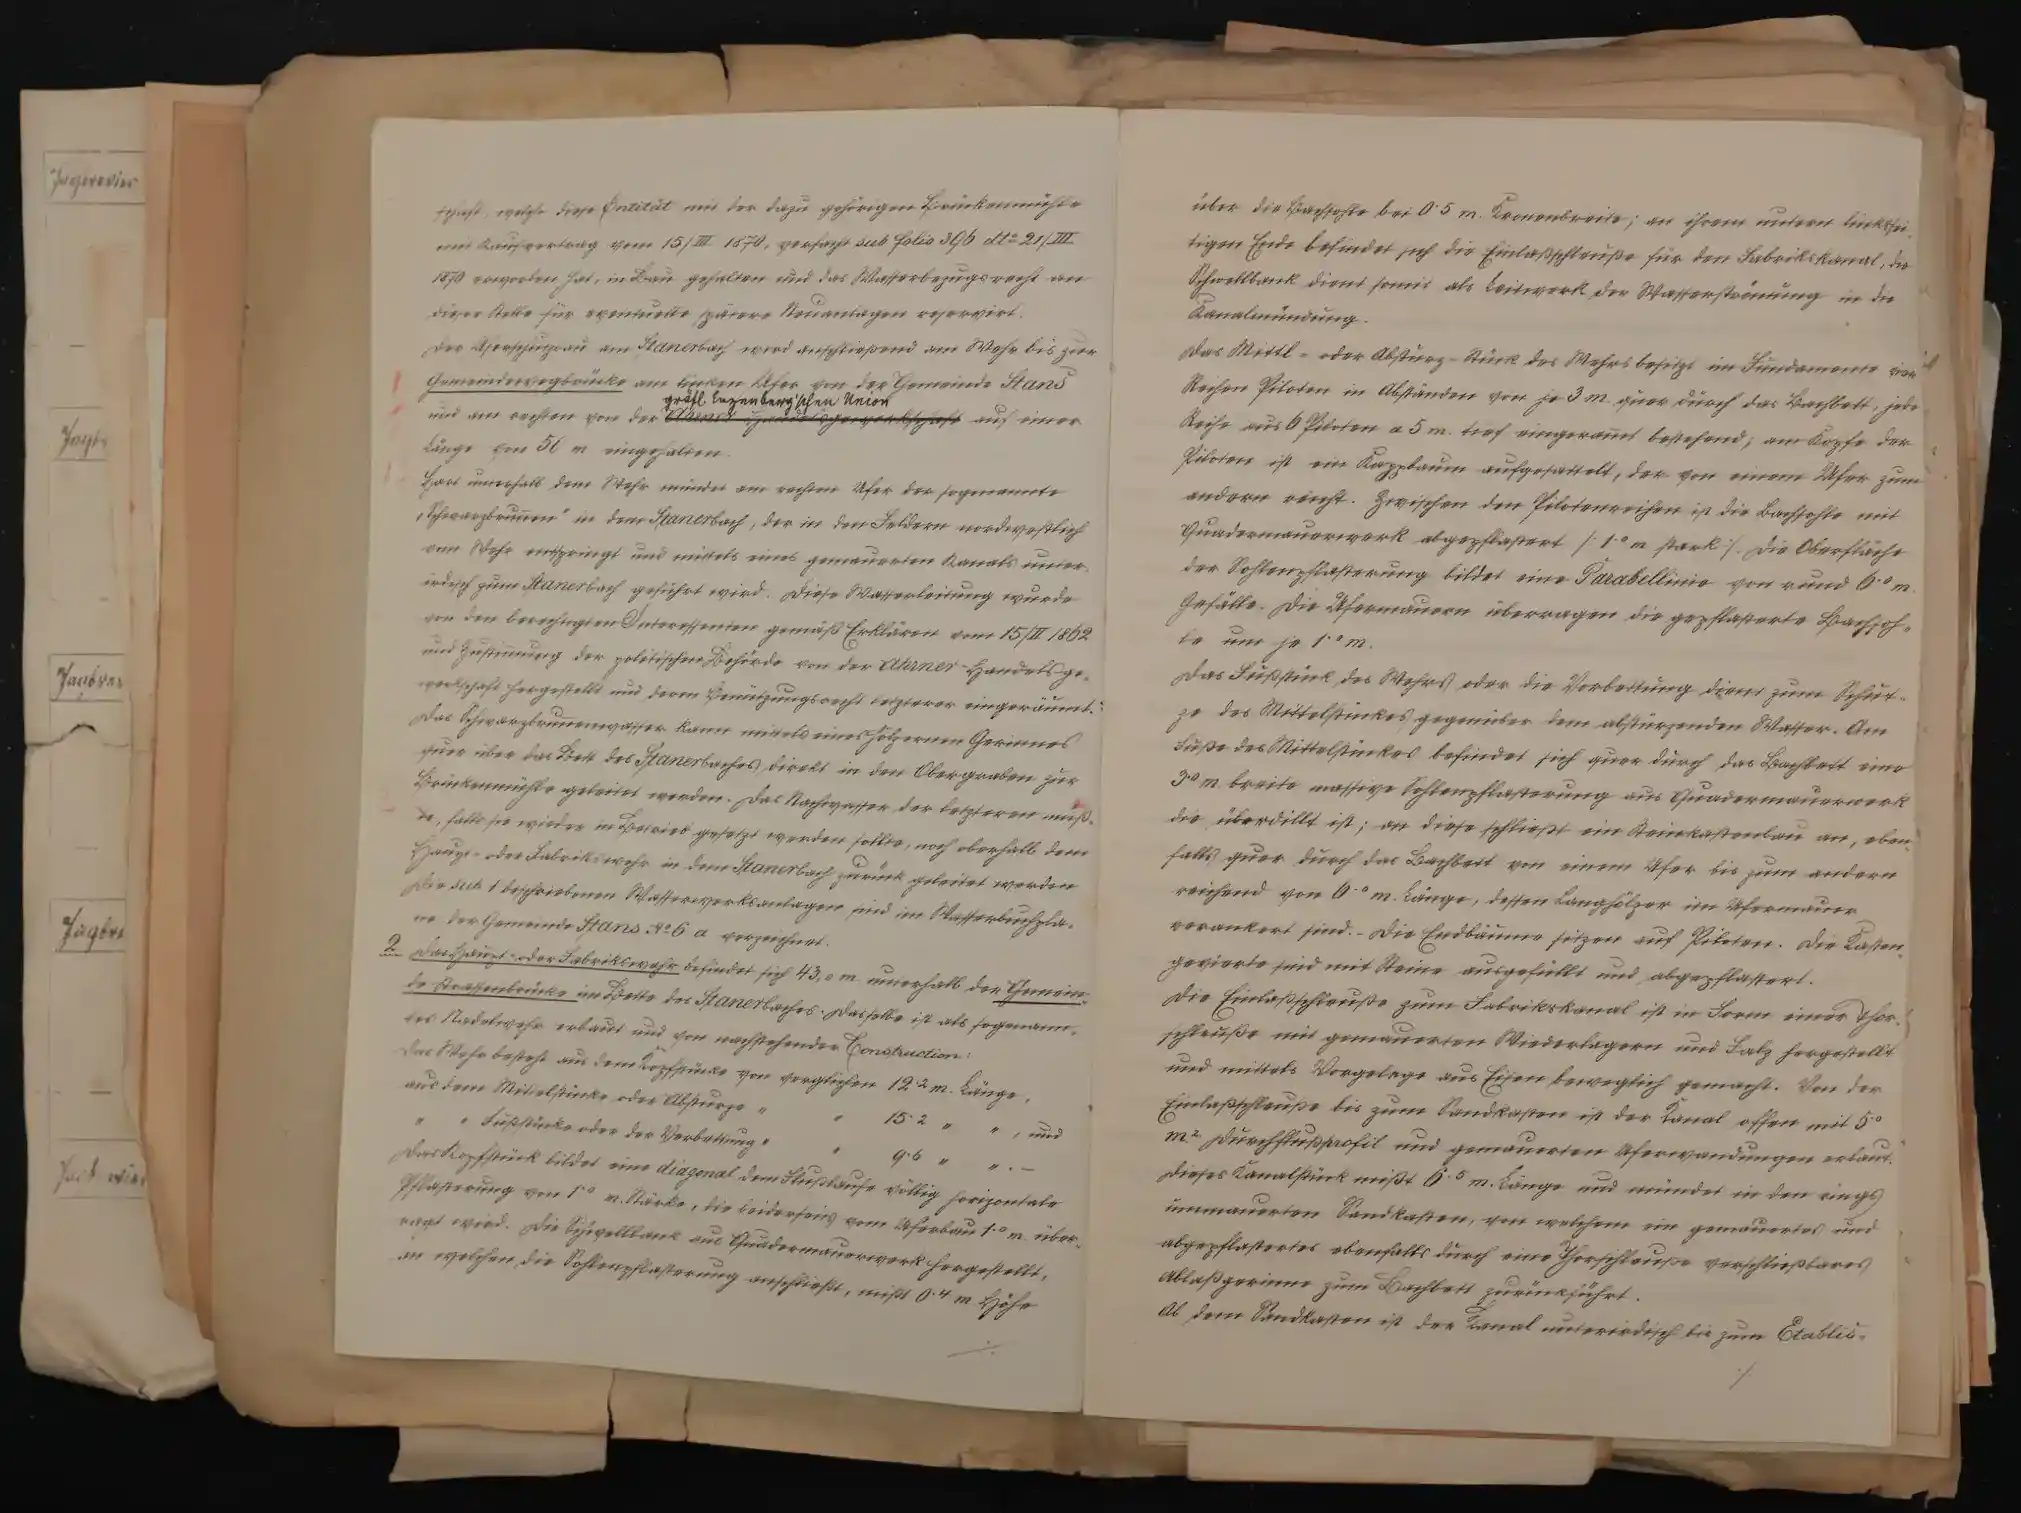 Jagdrevier
Jagd
schaft, welche diese Entität mit der dazu gehörigen Brückenmühle
mit Kaufvertrag vom 15/III 1870, verfacht sub folio 396 dto 21/III
1870 erworben hat, in Bau gehalten und das Wasserbezugsrecht an
dieser Stelle für eventuelle spätere Neuanlagen reservirt.
Der Uferschutzbau am Stanerbach wird anschließend am Wehr bis zur
Gemeindewegbrücke am linken Ufer von der Gemeinde Stans
gräfl. Enzenberg'schen Union
und am rechten von der Aherner Handelsgewerkschaft auf einer
Länge von 56 m eingehalten.
Hart unterhalb dem Wehr mündet am rechten Ufer der sogenannte
„Schwarzbrunnen" in dem Stanerbach, der in den Feldern nordwestlich
vom Wehr entspringt und mittels eines gemauerten Kanals unter-
irdisch zum Stanerbach geführt wird. Diese Wasserleitung wurde
von den berechtigten Interessenten gemäß Erklären vom 15/II 1862
und Zustimmung der politischen Behörde von der Aherner-Handelsge-
werkschaft hergestellt und deren Benützungsrecht letzterer eingeräumt.
Das Schwarzbrunnenwasser kann mittels eines hölzernen Gerinnes
quer über das Bett des Stanerbaches direkt in den Obergraben zur
Brückenmühle geleitet werden. Das Nachwasser der letzteren müß-
te, falls sie wieder in Betrieb gesetzt werden sollte, noch oberhalb dem
Haupt- oder Fabrikswehr in dem Stanerbach zurück geleitet werden
Die sub 1 beschriebenen Wasserwerksanlagen sind im Wasserbuchpla-
ne der Gemeinde Stans No 6 a verzeichnet.
2. Das Haupt- oder Fabrikswehr befindet sich 43,0 m unterhalb der Gemein-
de Strassenbrücke im Bette des Stanerbaches. Dasselbe ist als sogenann-
tes Nadelwehr erbaut und von nachstehender Construction:
Das Wehr besteht aus dem Kopfstücke von verglichen 12.2 m. Länge,
aus dem Mittelstücke oder Absturze " " 15.2 " ", und
" " Fußstücke oder der Vorbettung " " 9.6 " ". —
Das Kopfstück bildet eine diagonal dem Flußlaufe völlig horizontale
Pflasterung von 1.0 m. Stärke, die beiderseits vom Uferbau 1.0 m. über-
ragt wird. Die Schwellbank aus Quadermauerwerk hergestellt,
an welchen die Sohlenpflasterung anschließt, mißt 0.4 m Höhe
./.
über die Bachsohle bei 0.5 m. Kronenbreite; an ihrem untern linkssei-
tigen Ende befindet sich die Einlaßschleuße für den Fabrikskanal, die
Schwellbank dient somit als Leitwerk der Wasserströmung in die
Kanalmündung.
Das Mittl- oder Absturz-Stück des Wehrs besitzt im Fundamente vier
Reihen Piloten in Abständen von je 3 m quer durch das Bachbett, jede
Reihe aus 6 Piloten a 5 m. tief eingerammt bestehend; am Kopfe der
Piloten ist ein Kappbaum aufgesattelt, der von einem Ufer zum
andern reicht. Zwischen den Pilotenreihen ist die Bachsohle mit
Quadermauerwerk abgepflastert /: 1.0 m stark :/. Die Oberfläche
der Sohlenpflasterung bildet eine Parabellinie von rund 6.0 m.
Gefälle. Die Ufermauern überragen die gepflasterte Bachsoh-
le um je 1.0 m.
Das Fußstück des Wehrs oder die Vorbettung dient zum Schut-
ze des Mittelstückes gegenüber dem abstürzenden Wasser. Am
Fuße des Mittelstückes befindet sich quer durch das Bachbett eine
3.0 m breite massive Sohlenpflasterung aus Quadermauerwerk
die überdillt ist; an diese schließt ein Steinkastenbau an, eben-
falls quer durch das Bachbett von einem Ufer bis zum andern
reichend von 6.0 m. Länge, dessen Langhölzer im Ufermauer
verankert sind. – Die Endbäume sitzen auf Piloten. Die Kasten-
gevierte sind mit Steine ausgefüllt und abgepflastert.
Die Einlaßschleuße zum Fabrikskanal ist in Form einer Thor-
schleuße mit gemauerten Wiederlagern und Falz hergestellt
und mittels Vorgelege aus Eisen beweglich gemacht. Von der
Einlaßschleuße bis zum Sandkasten ist der Kanal offen mit 5.0
m2 Durchflußprofil und gemauerten Uferwandungen erbaut.
Dieses Kanalstück mißt 6.5 m. Länge und mündet in den rings
ummauerten Sandkasten, von welchem ein gemauertes und
abgepflastertes ebenfalls durch eine Thorschleuße verschließbares
Ablaßgerinne zum Bachbett zurückführt.
Ab dem Sandkasten ist der Kanal unterirdisch bis zum Etablis-
./.